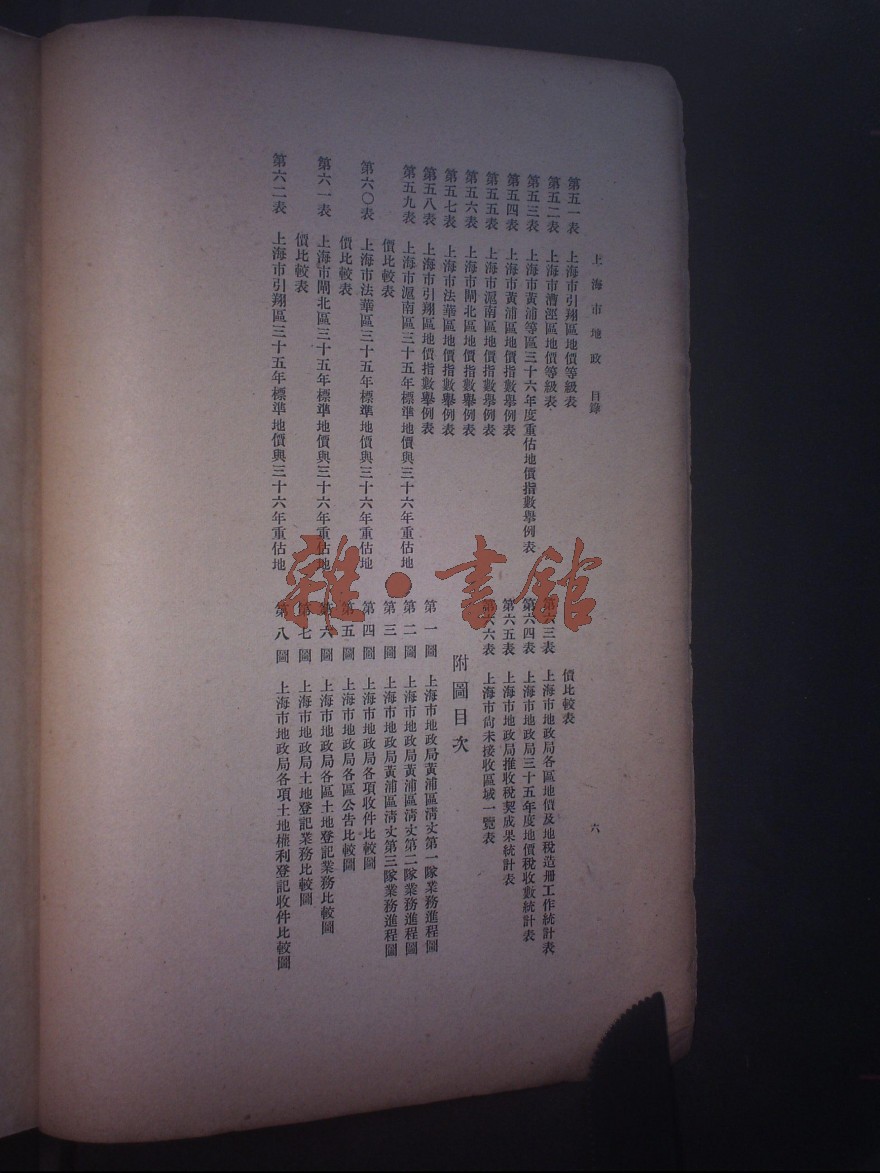 上海市地政 目錄
六
第五一表 上海市引翔區地價等級表
第五二表 上海市漕涇區地價等級表
第五三表 上海市黃浦等區三十六年度重估地價指數舉例表
第五四表 上海市黃浦區地價指數舉例表
第五五表 上海市滬南區地價指數舉例表
第五六表 上海市閘北區地價指數舉例表
第五七表 上海市法華區地價指數舉例表
第五八表 上海市引翔區地價指數舉例表
第五九表 上海市滬南區三十五年標準地價與三十六年重估地
價比較表
第六〇表 上海市法華區三十五年標準地價與三十六年重估地
價比較表
第六一表 上海市閘北區三十五年標準地價與三十六年重估地
價比較表
第六二表 上海市引翔區三十五年標準地價與三十六年重估地
價比較表
第六三表 上海市地政局各區地價及地稅造册工作統計表
第六四表 上海市地政局三十五年度地價稅收數統計表
第六五表 上海市地政局推收稅契成果統計表
第六六表 上海市尙未接收區域一覽表
附圖目次
第一圖 上海市地政局黃浦區淸丈第一隊業務進程圖
第二圖 上海市地政局黃浦區淸丈第二隊業務進程圖
第三圖 上海市地政局黃浦區淸丈第三隊業務進程圖
第四圖 上海市地政局各項收件比較圖
第五圖 上海市地政局各區公告比較圖
第六圖 上海市地政局各區土地登記業務比較圖
第七圖 上海市地政局土地登記業務比較圖
第八圖 上海市地政局各項土地權利登記收件比較圖
雜·書館